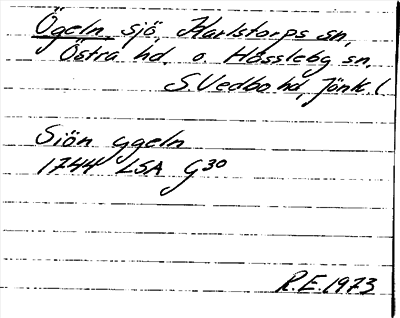 Ögeln, sjö, Karlstorps sn,
Östra hd o. Hässleby sn,
S Vedbo hd, Jönk. l
Siön ggeln
1744 LSA G30
R.E. 1973